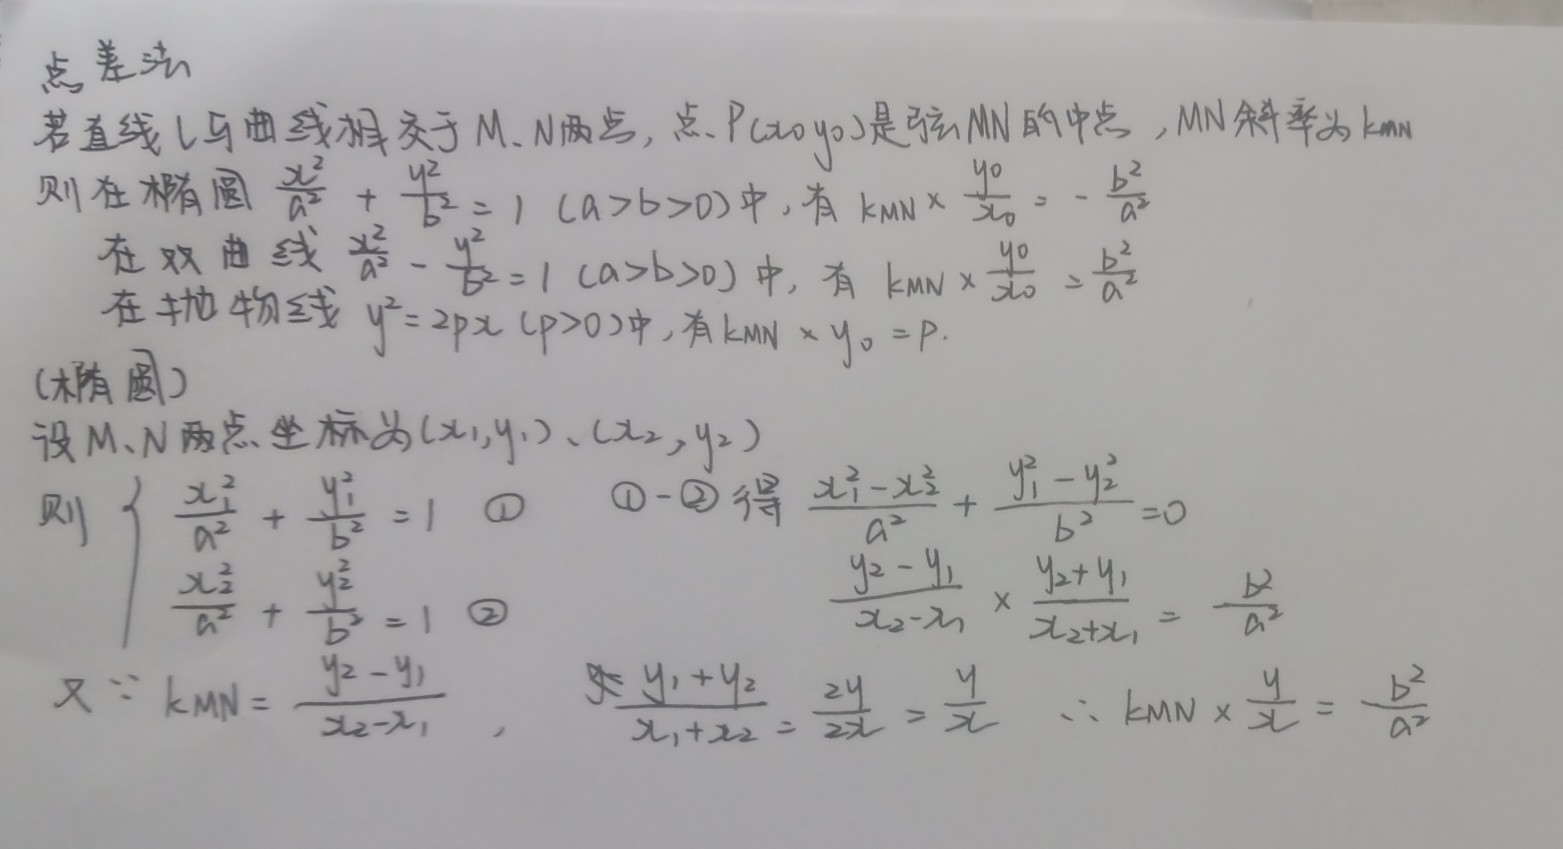 点差法
若直线l与曲线相交于M、N两点,点P(x₀y₀)是弦MN的中点,MN斜率为kMN
则在椭圆 x²/a² + y²/b² = 1 (a>b>0)中,有 kMN × y₀/x₀ = - b²/a²
在双曲线 x²/a² - y²/b² = 1 (a>b>0)中,有 kMN × y₀/x₀ = b²/a²
在抛物线 y² = 2px (p>0)中,有kMN × y₀ = p.
(椭圆)
设M、N两点坐标为(x₁,y₁)、(x₂,y₂)
则 { x₁²/a² + y₁²/b² = 1 ① ①-②得 (x₁²-x₂²)/a² + (y₁²-y₂²)/b² = 0
x₂²/a² + y₂²/b² = 1 ② (y₂-y₁)/(x₂-x₁) × (y₂+y₁)/(x₂+x₁) = - b²/a²
又∵ kMN = (y₂-y₁)/(x₂-x₁) , (y₁+y₂)/(x₁+x₂) = 2y/2x = y/x ∴ kMN × y/x = - b²/a²